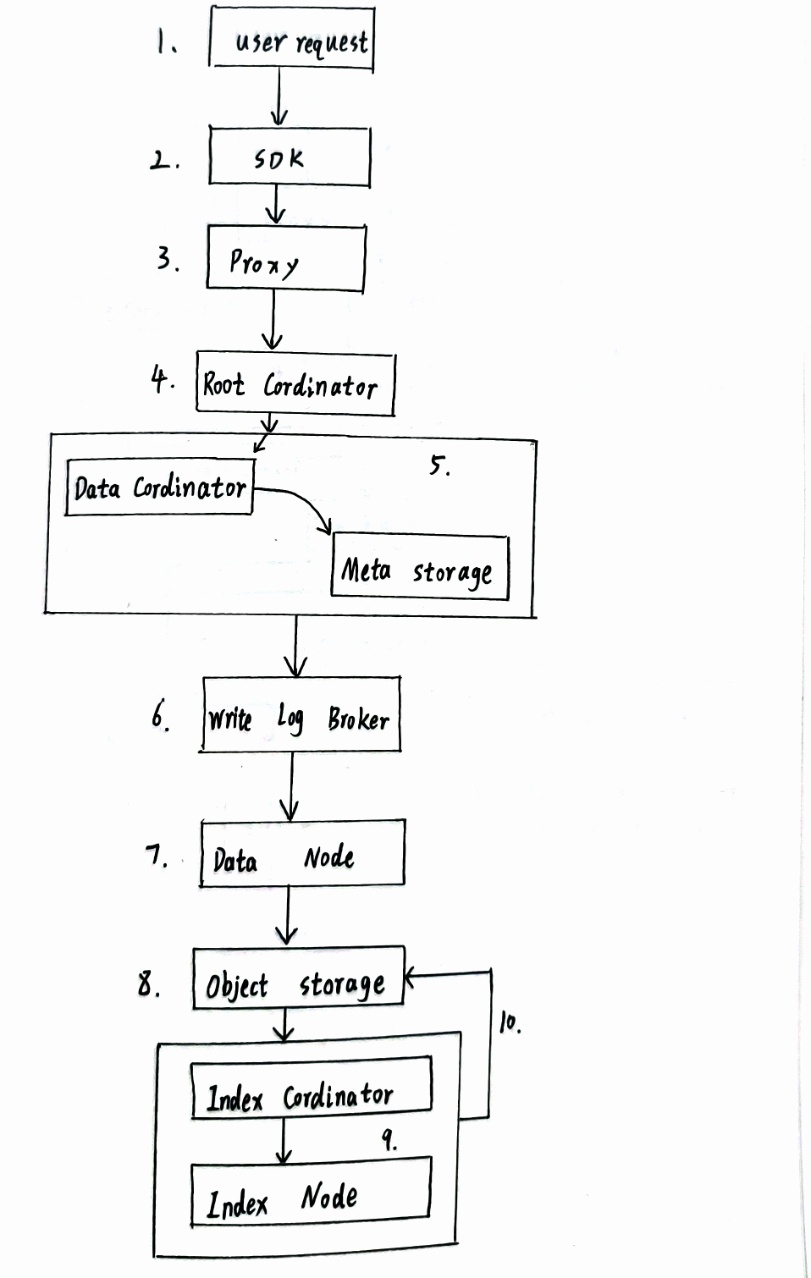 1. user request
2. SDK
3. Proxy
4. Root Cordinator
5.
Data Cordinator
Meta storage
6. Write Log Broker
7. Data Node
8. Object storage
10.
Index Cordinator
9.
Index Node